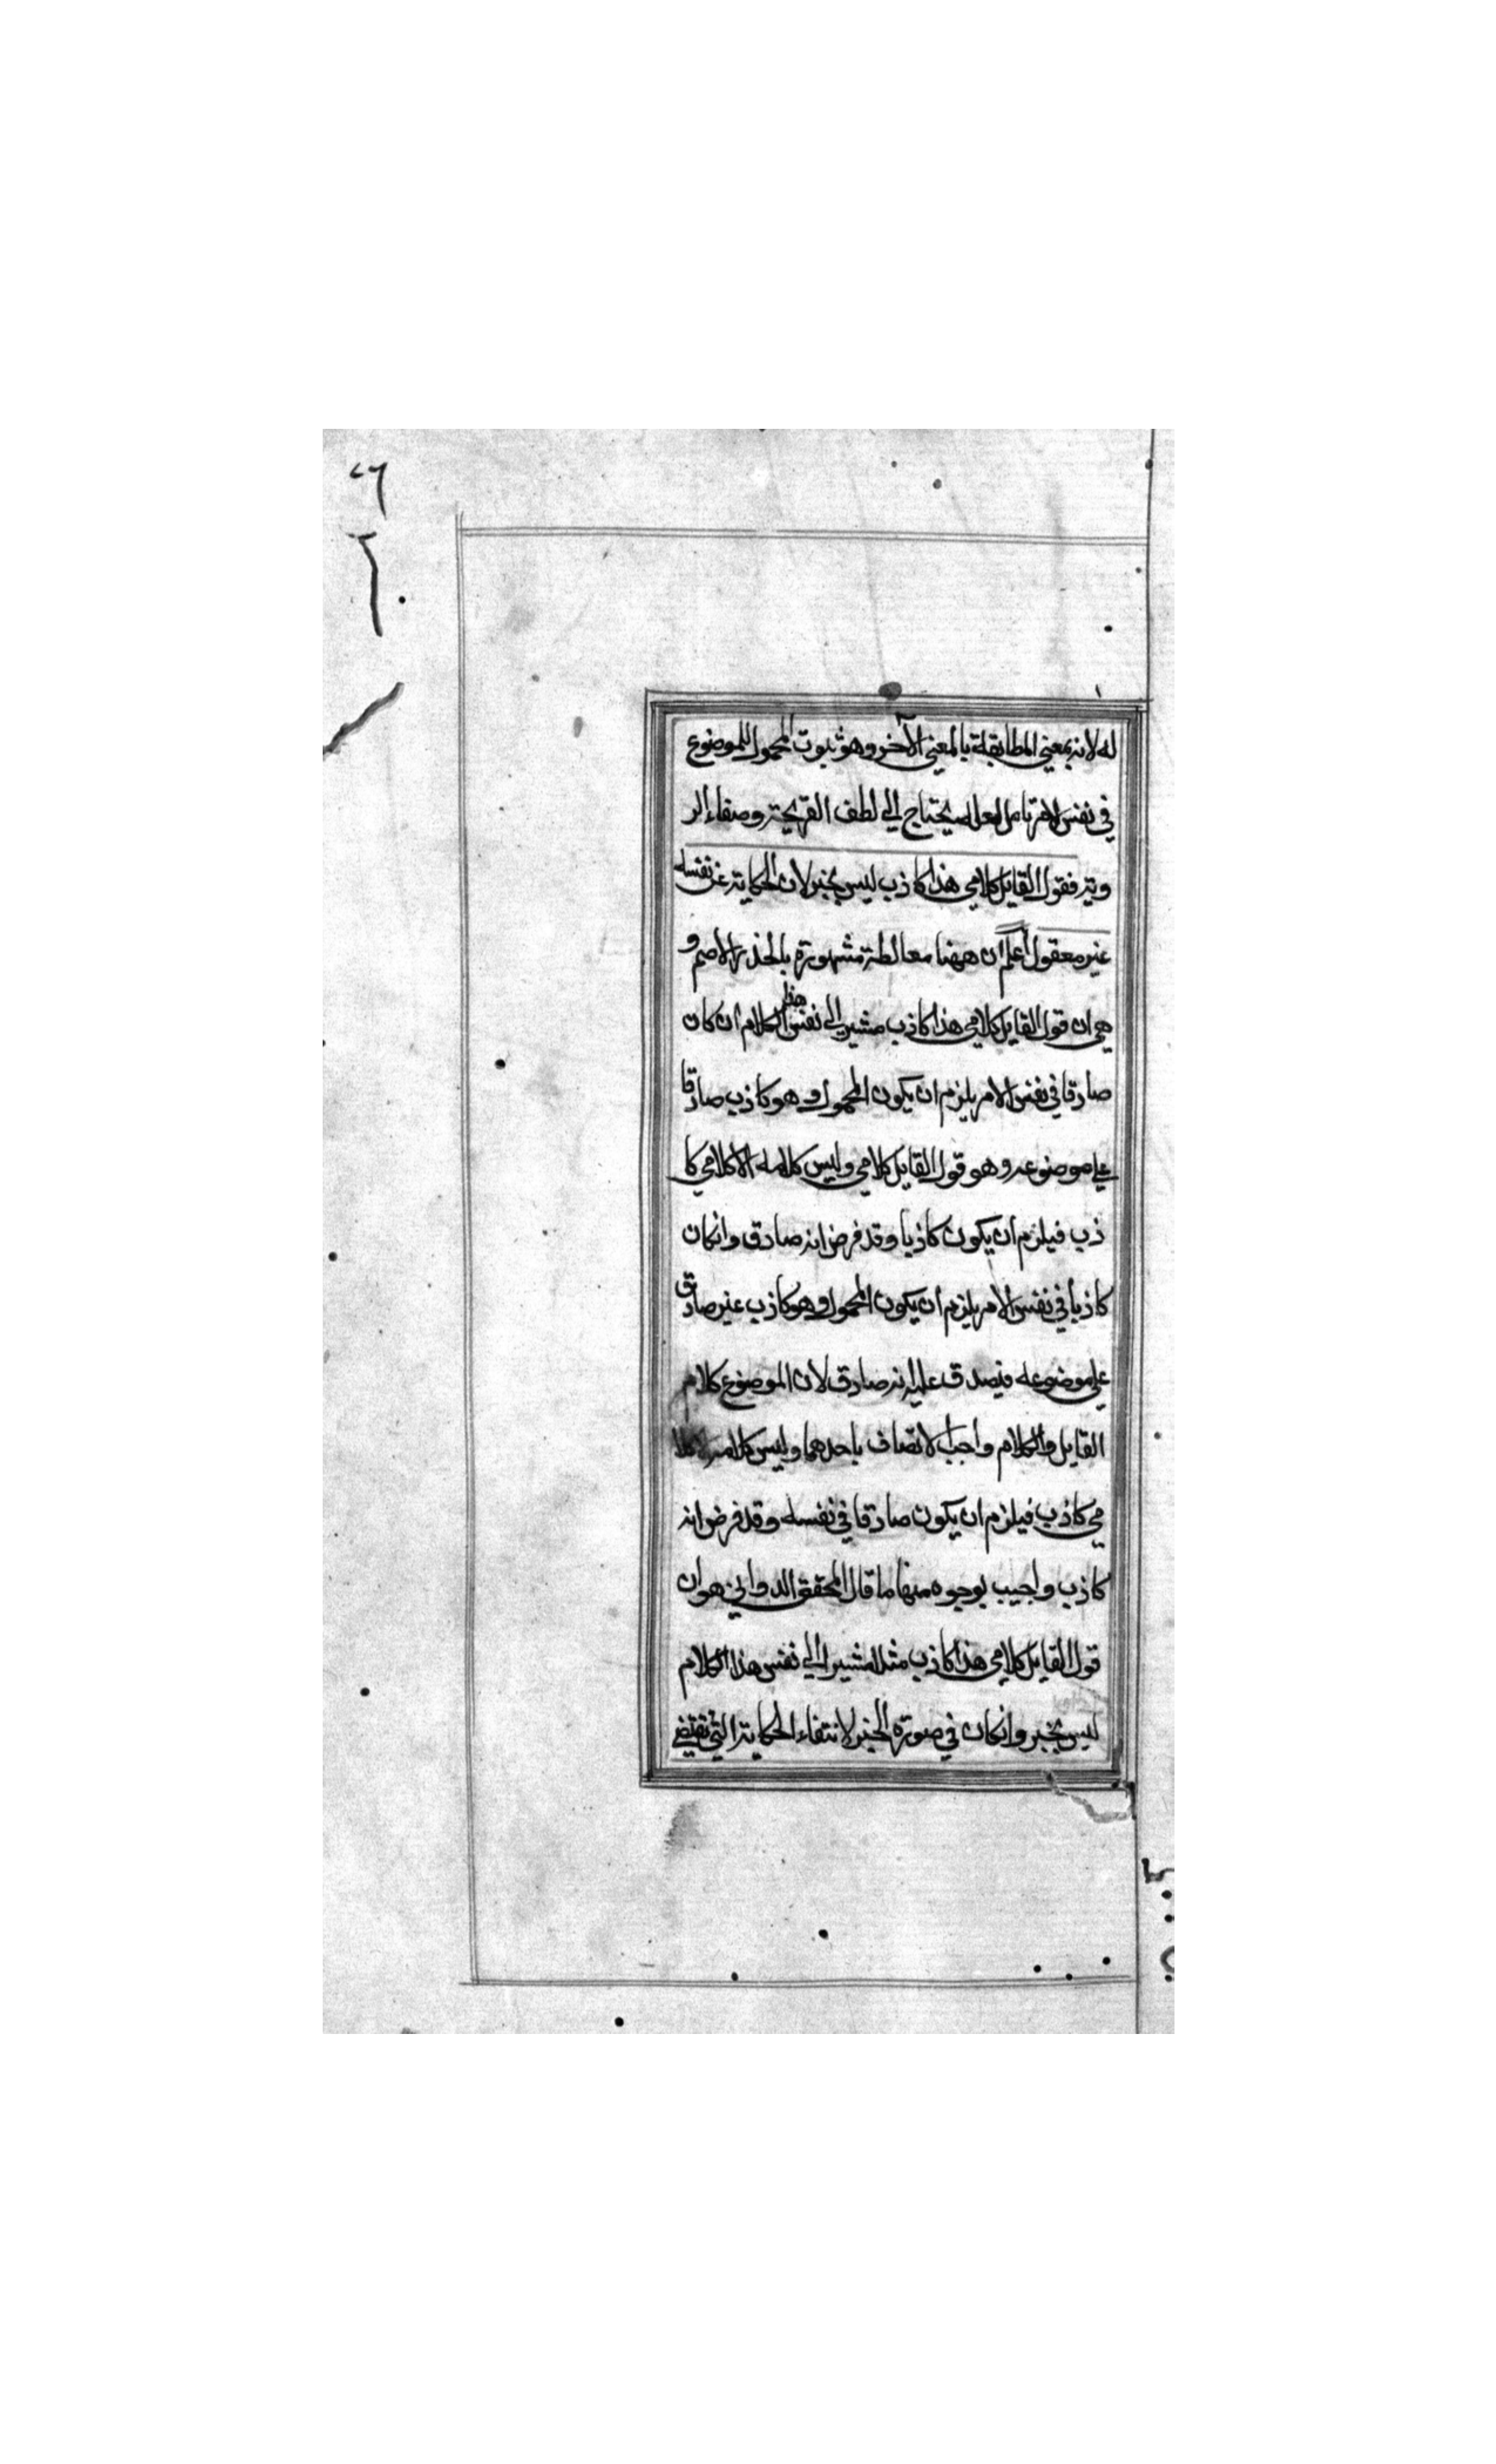 له لانه بمعني المطابقة بالمعني الآخر وهو ثبوت المحمول للموضوع
في نفس الامر تامل لعله يحتاج الي لطف القريحة وصفاء الر
وية فقول القايل كلامي هذا كاذب ليس بخبر لان الحكاية عن نفسه
غير معقول اعلم ان ههنا مغالطة مشهورة بالجذر الاصم و
هي ان قول القايل كلامي هذا كاذب مشيرا الي نفس هذا الكلام ان كان
صادقا في نفس الامر يلزم ان يكون المحمول وهو كاذب صادقا
علي موضوعه وهو قول القايل كلامي وليس كلامه الا كلامي كا
ذب فيلزم ان يكون كاذبا وقد فرض انه صادق وانكان
كاذبا في نفس الامر يلزم ان يكون المحمول وهو كاذب غير صادق
علي موضوعه فيصدق عليه انه صادق لان الموضوع كلام
القايل والكلام واجب الاتصاف باحدهما وليس كلامه الا كلا
مي كاذب فيلزم ان يكون صادقا في نفسه وقد فرض انه
كاذب واجيب بوجوه منها ما قال المحقق الدواني هو ان
قول القايل كلامي هذا كاذب مثلا مشيرا الي نفس هذا الكلام
ليس بخبر وانكان في صورة الخبر لانتفاء الحكاية التي تقتضي